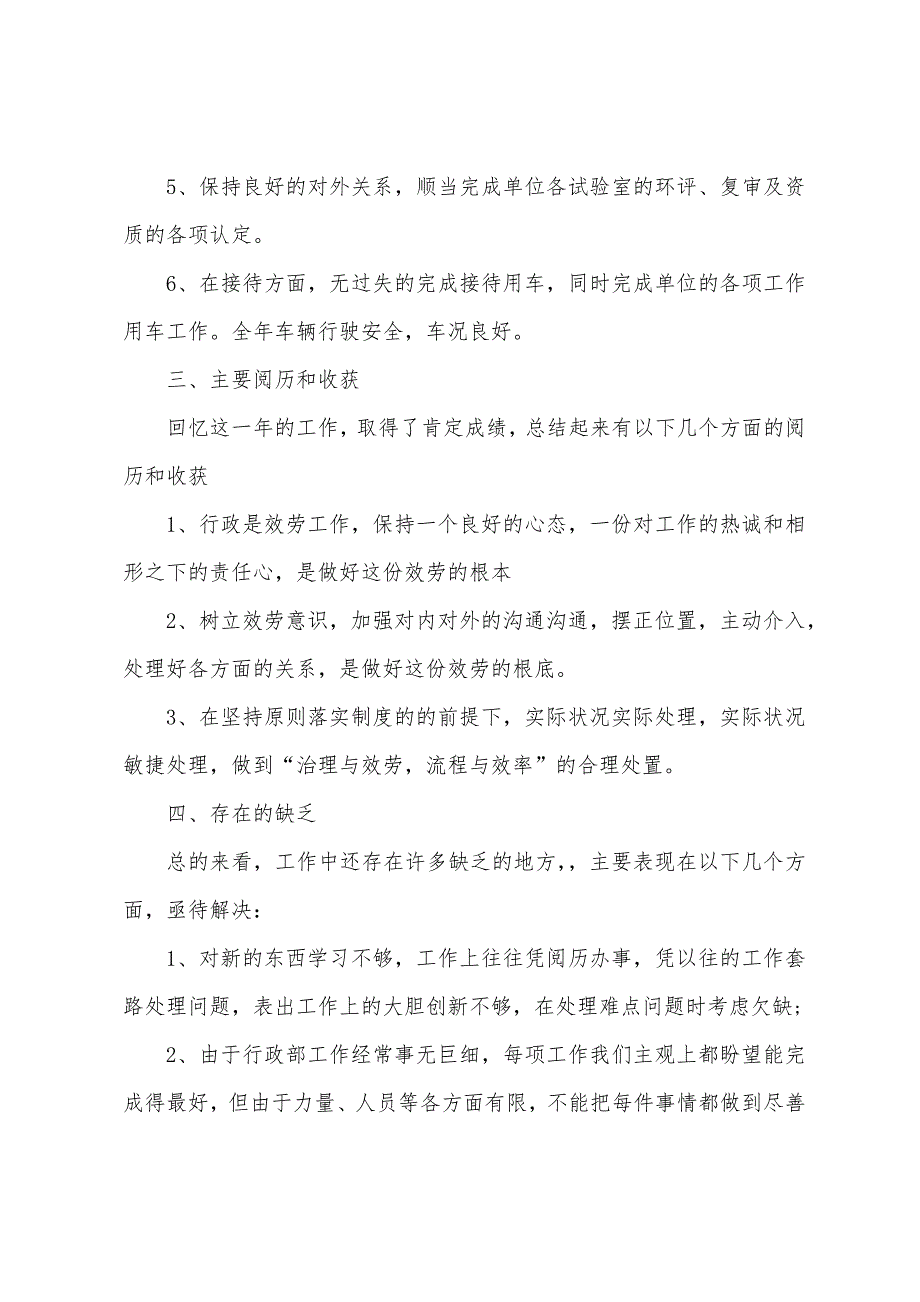 5、保持良好的对外关系，顺当完成单位各试验室的环评、复审及资
质的各项认定。
6、在接待方面，无过失的完成接待用车，同时完成单位的各项工作
用车工作。全年车辆行驶安全，车况良好。
三、主要阅历和收获
回忆这一年的工作，取得了肯定成绩，总结起来有以下几个方面的阅
历和收获
1、行政是效劳工作，保持一个良好的心态，一份对工作的热诚和相
形之下的责任心，是做好这份效劳的根本
2、树立效劳意识，加强对内对外的沟通沟通，摆正位置，主动介入，
处理好各方面的关系，是做好这份效劳的根底。
3、在坚持原则落实制度的的前提下，实际状况实际处理，实际状况
敏捷处理，做到“治理与效劳，流程与效率”的合理处置。
四、存在的缺乏
总的来看，工作中还存在许多缺乏的地方，，主要表现在以下几个方
面，亟待解决：
1、对新的东西学习不够，工作上往往凭阅历办事，凭以往的工作套
路处理问题，表出工作上的大胆创新不够，在处理难点问题时考虑欠缺;
2、由于行政部工作经常事无巨细，每项工作我们主观上都盼望能完
成得最好，但由于力量、人员等各方面有限，不能把每件事情都做到尽善